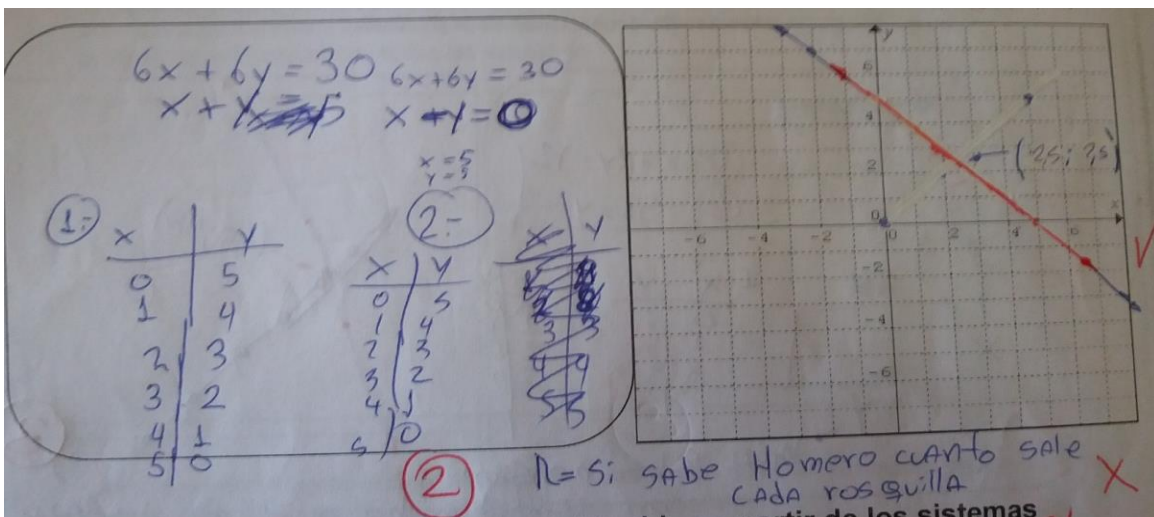 6x + 6y = 30
x + y = 5
6x + 6y = 30
x - y = 0
x = 5
1=
x y
0 5
1 4
2 3
3 2
4 1
5 0
2=
x y
0 5
1 4
2 3
3 2
4 1
5 0
x y
3 3
4 4
5 5
y
6
4
2
0
-6 -4 -2 2 4 6
x
-2
-4
-6
(2,5; 2,5)
2
R= Si SABE Homero cuANto SAle
CADA rosquillA
de los sistemas